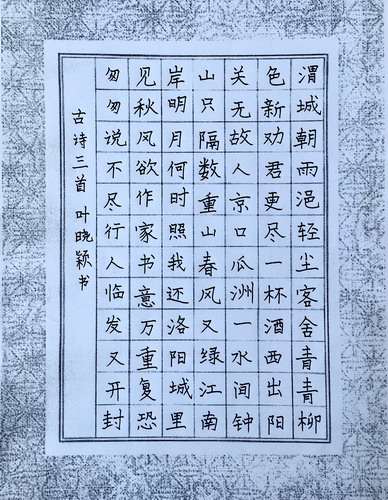 渭城朝雨浥轻尘客舍青青柳
色新劝君更尽一杯酒西出阳
关无故人京口瓜洲一水间钟
山只隔数重山春风又绿江南
岸明月何时照我还洛阳城里
见秋风欲作家书意万重复恐
匆匆说不尽行人临发又开封
古诗三首 叶晓颖书